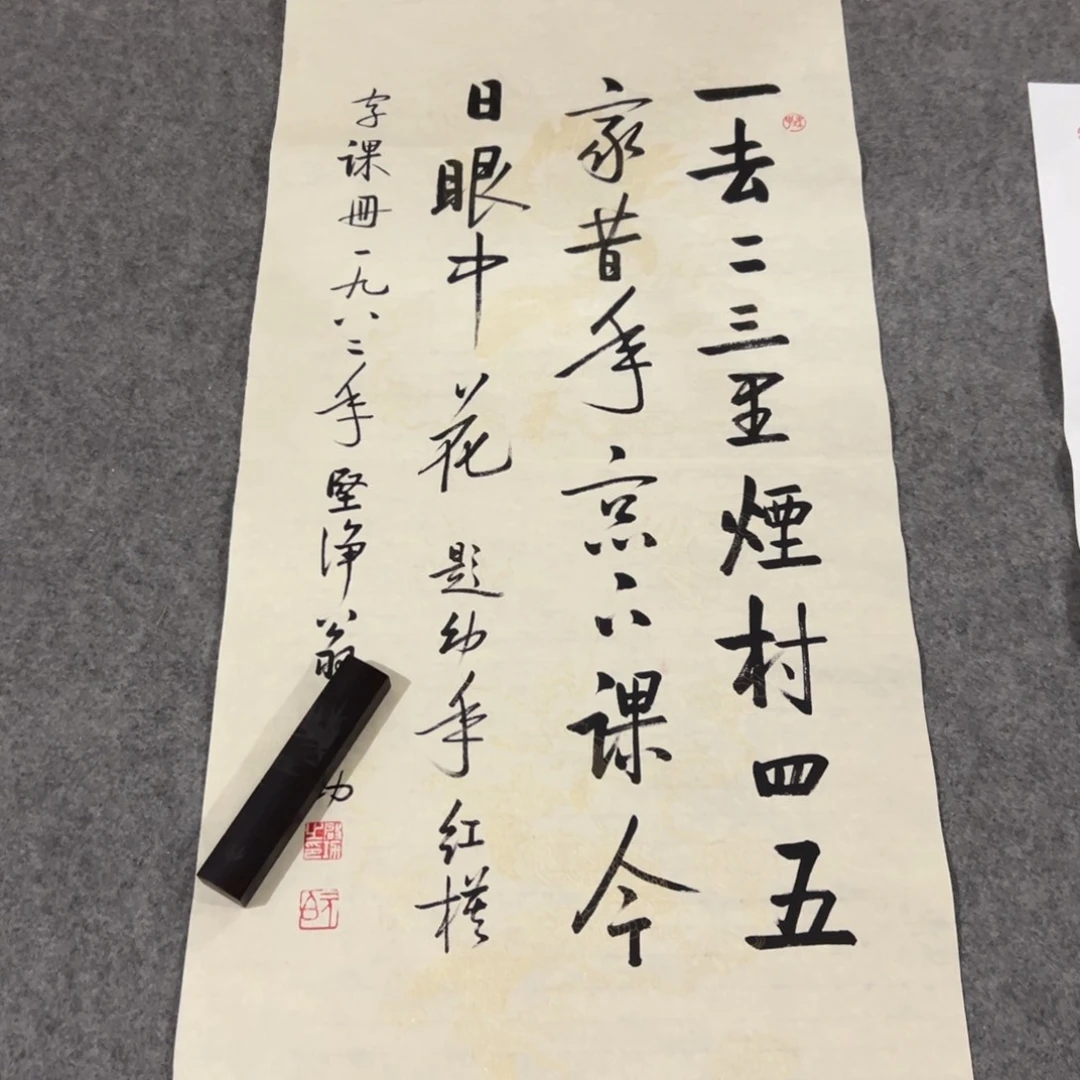 一去二三里煙村四五
家昔年窓下課今
日眼中花 題幼年紅模
字課冊一九八二年堅淨翁